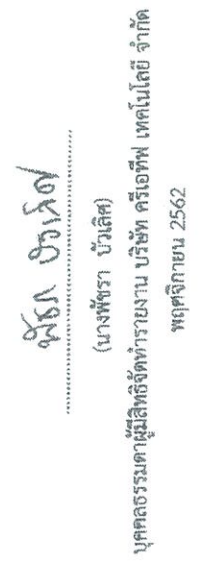 พัชรา บัวเลิศ
(นางพัชรา บัวเลิศ)
บุคคลธรรมดาผู้มีสิทธิจัดทำรายงาน บริษัท ครีเอทีฟ เทคโนโลยี จำกัด
พฤศจิกายน 2562